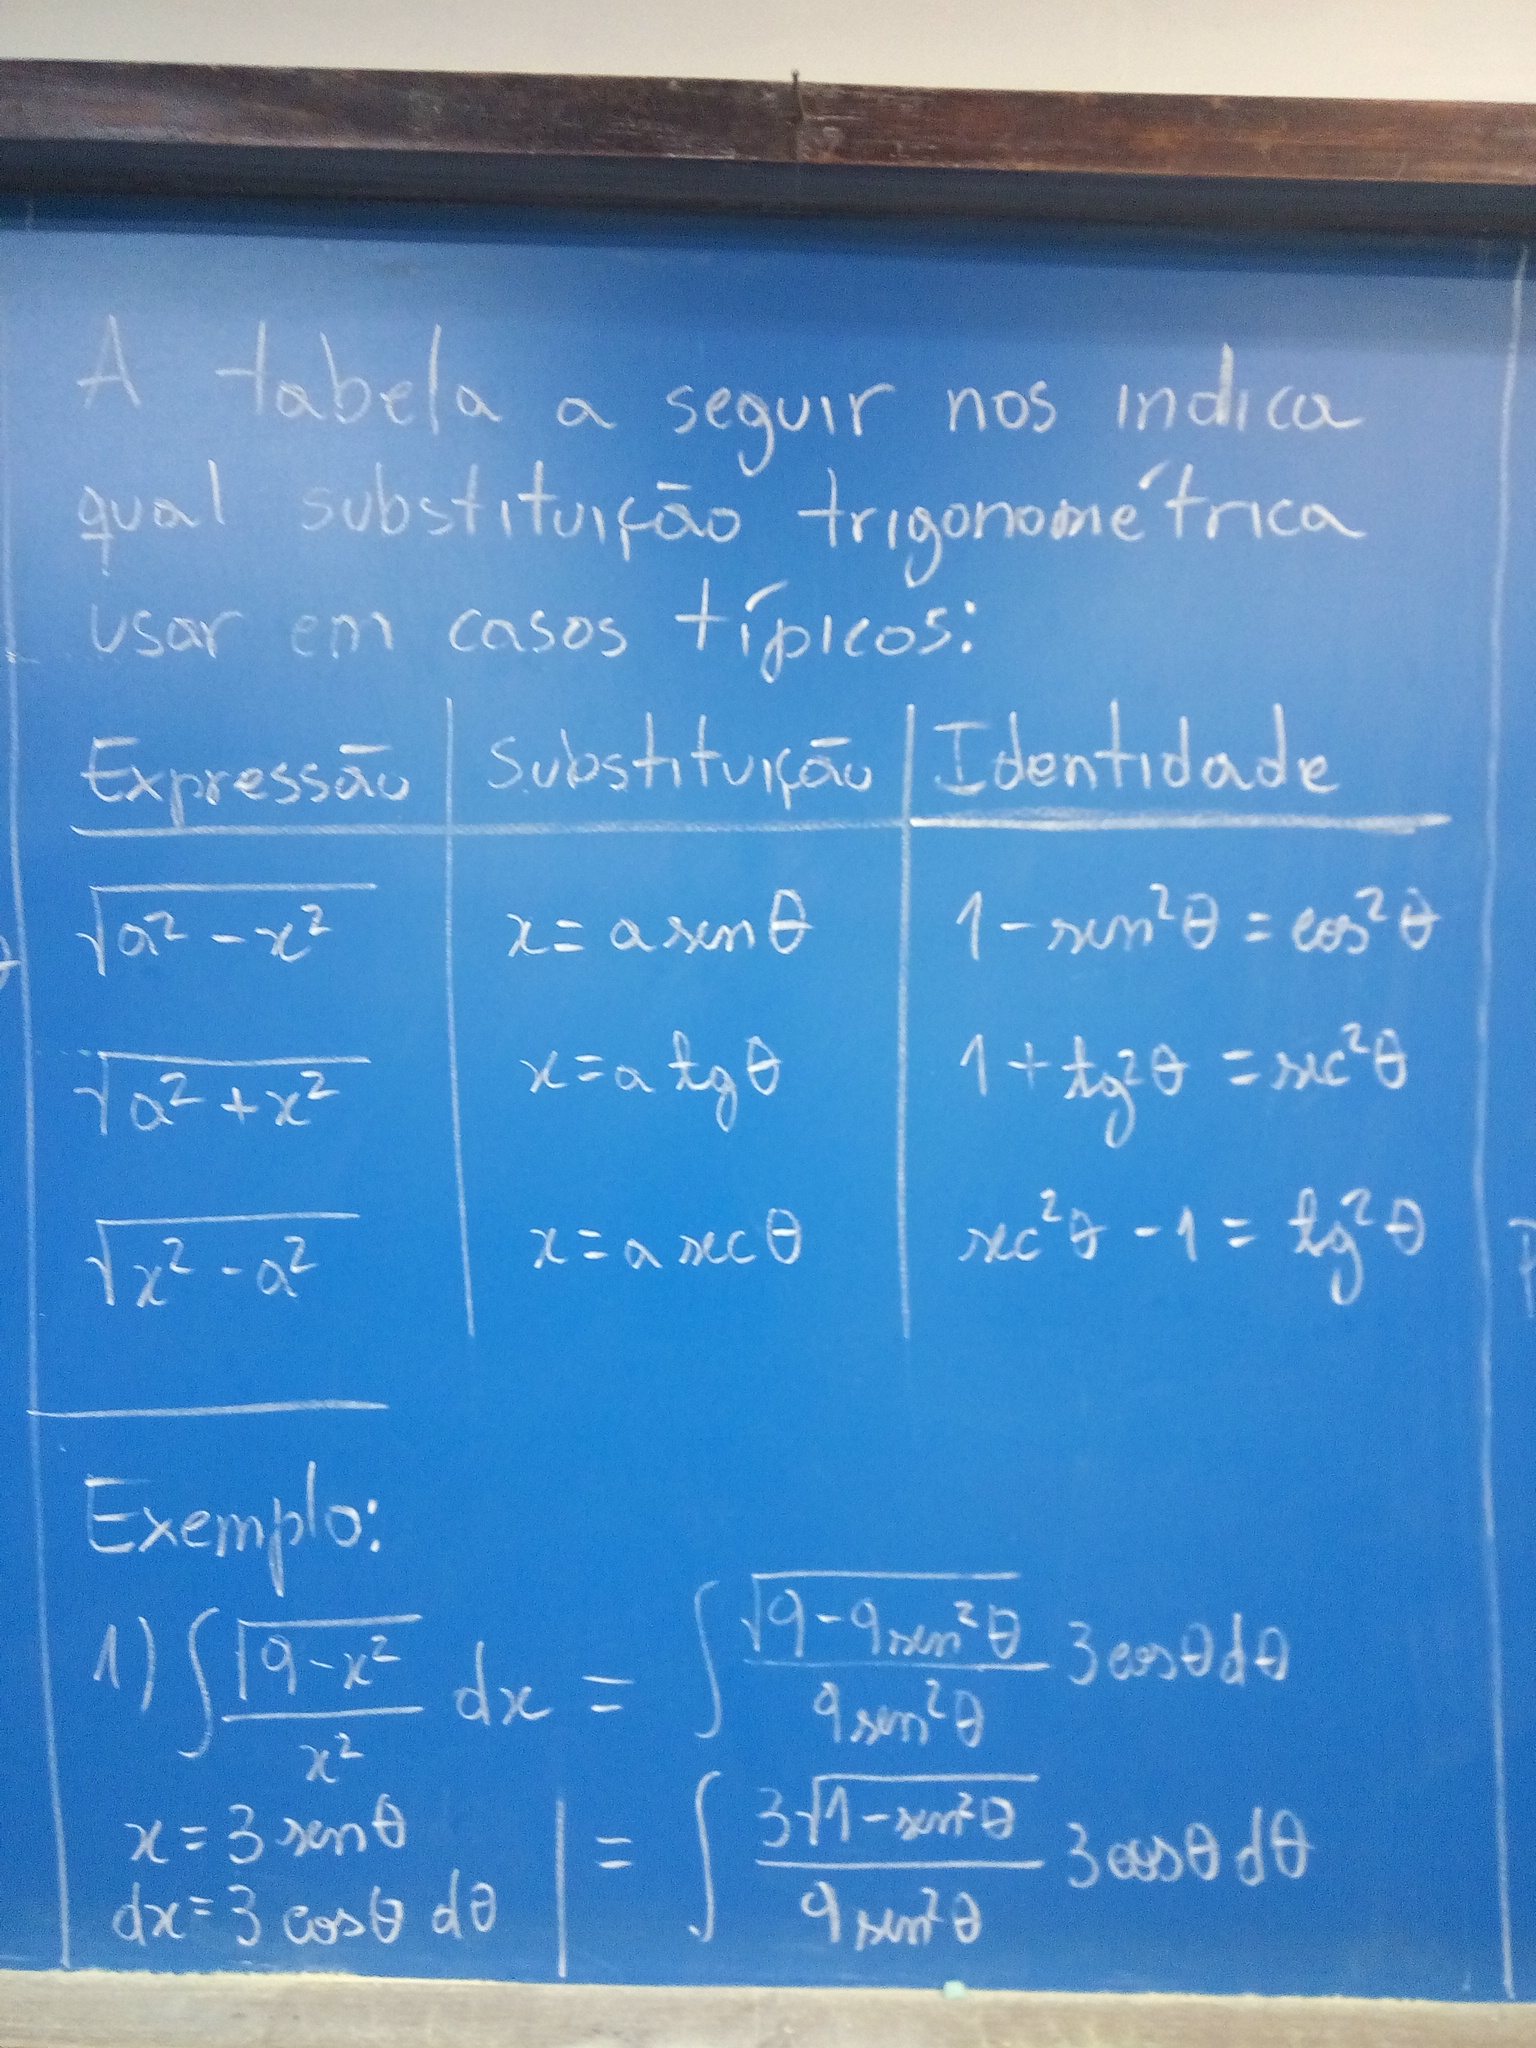 A tabela a seguir nos indica
qual substituição trigonométrica
usar em casos típicos:
Expressão | Substituição | Identidade
√(a² - x²) | x = a sen θ | 1 - sen²θ = cos²θ
√(a² + x²) | x = a tg θ | 1 + tg²θ = sec²θ
√(x² - a²) | x = a sec θ | sec²θ - 1 = tg²θ
Exemplo:
1) ∫ √(9 - x²) / x² dx = ∫ √(9 - 9 sen²θ) / 9 sen²θ 3 cos θ dθ
x = 3 sen θ
dx = 3 cos θ dθ
= ∫ 3√(1 - sen²θ) / 9 sen²θ 3 cos θ dθ